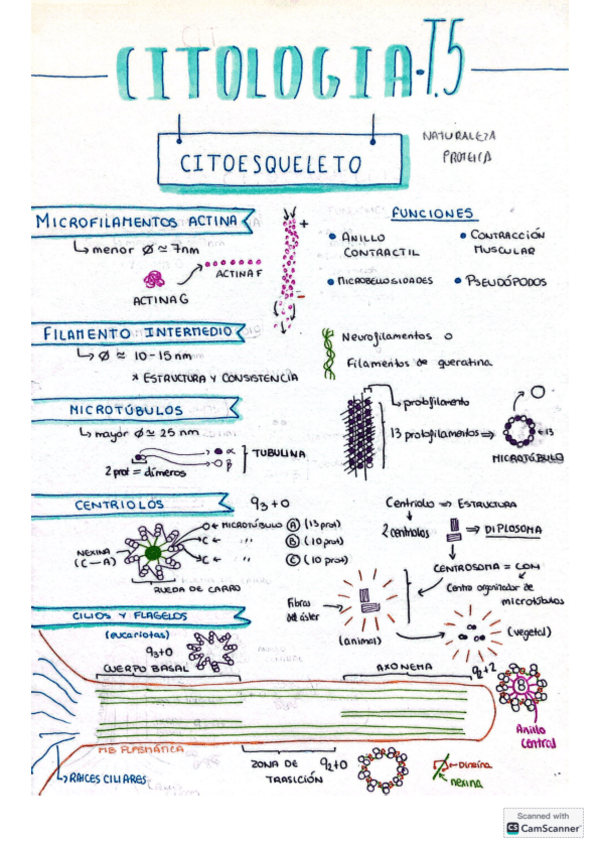 CITOLOGIA-T.5
CITOESQUELETO
NATURALEZA
PROTEICA
MICROFILAMENTOS ACTINA
↳ menor Ø ≃ 7nm
ACTINA F
ACTINA G
+
-
FUNCIONES
• ANILLO
CONTRACTIL
• CONTRACCIÓN
MUSCULAR
• MICROBELLOSIDADES
• PSEUDÓPODOS
FILAMENTO INTERMEDIO
↳ Ø ≃ 10-15 nm
* ESTRUCTURA Y CONSISTENCIA
Neurofilamentos o
Filamentos de queratina
MICROTÚBULOS
↳ mayor Ø ≃ 25 nm
α
β
TUBULINA
2 prot = dímeros
protofilamento
13 protofilamentos ⇒
13
MICROTÚBULO
CENTRIOLOS
93+0
NEXINA
(C-A)
MICROTÚBULO Ⓐ (13 prot)
C← " Ⓑ (10 prot)
C← " Ⓒ (10 prot)
RUEDA DE CARRO
Centriolo ⇒ ESTRUCTURA
2 centriolos
⇒ DIPLOSOMA
CENTROSOMA = COM
Centro organizador de
microtúbulos
Fibras
del áster
(animal)
(vegetal)
CILIOS Y FLAGELOS
(eucariotas)
93+0
CUERPO BASAL
AXONEMA
92+2
Anillo
central
MB PLASMÁTICA
↳ RAICES CILIARES
ZONA DE
TRASICIÓN
92+0
Dineína
nexina
Scanned with
CS CamScanner